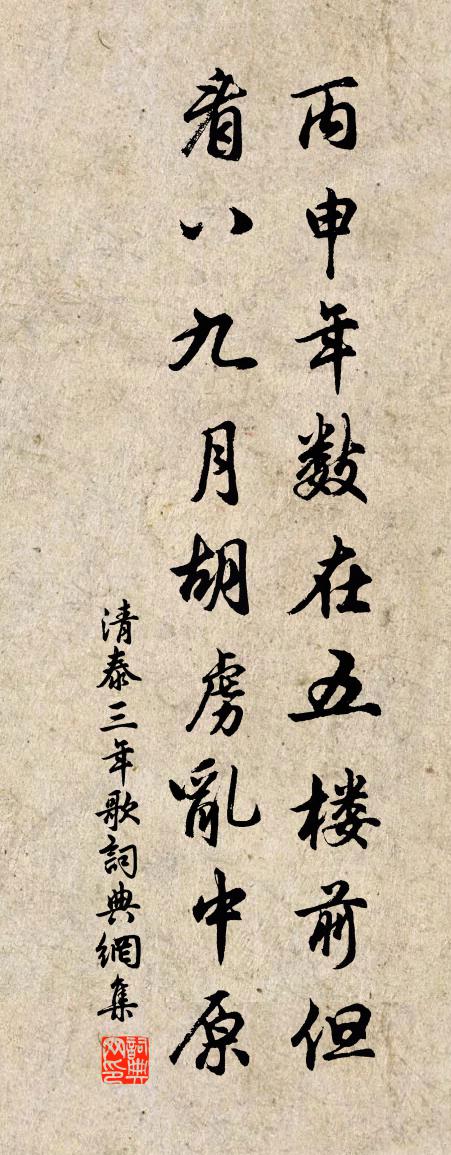 丙申年数在五楼前但
看八九月胡虏亂中原
清泰三年歌詞典網集
詞典网印